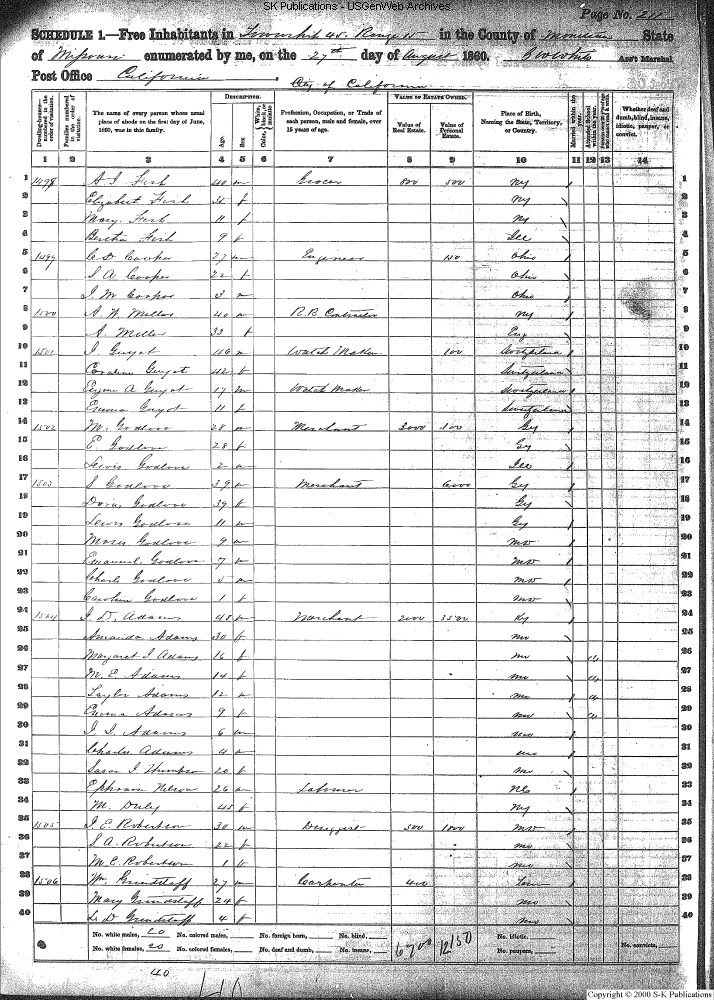 SK Publications - USGenWeb Archives
Page No. 211
SCHEDULE 1.—Free Inhabitants in Township 45 Range 15 in the County of Moniteau State
of Missouri enumerated by me, on the 27th day of August 1860. Ass't Marshal
Post Office California. City of California
Dwelling-houses—numbered in the order of visitation.
Families numbered in the order of visitation.
The name of every person whose usual place of abode on the first day of June, 1860, was in this family.
DESCRIPTION.
Age.
Sex
Color, {White, black, or mulatto
Profession, Occupation, or Trade of each person, male and female, over 15 years of age.
VALUE OF ESTATE OWNED.
Value of Real Estate.
Value of Personal Estate.
Place of Birth, Naming the State, Territory, or Country.
Married within the year.
Whether deaf and dumb, blind, insane, idiotic, pauper, or convict.
1 2 3 4 5 6 7 8 9 10 11 12 13 14
1 1498 A I Fish 40 m Grocer 800 500 NY 1
2 Elizabeth Fish f NY 2
3 Mary Fish 11 f NY 3
4 Bertha Fish 9 f Ill 4
5 1499 Cooper 27 m Engineer 150 Ohio 5
6 S A Cooper 22 f Ohio 6
7 J M Cooper 3 m Ohio 7
8 1500 A. W. Miller 40 m R.R. Contractor NY 8
9 A. Miller 33 f Eng 9
10 1501 J Guyot 46 m Watch Maker 100 Switzerland 10
11 Caroline Guyot 42 f Switzerland 11
12 Eugene A Guyot 17 m Watch Maker Switzerland 12
13 Emma Guyot 11 f Switzerland 13
14 1502 M. Godlove 28 m Merchant 3000 100 Gy 14
15 E. Godlove 28 f Gy 15
16 Lewis Godlove 2 m Ill 16
17 1503 S Godlove 39 m Merchant 6000 Gy 17
18 Dora Godlove 39 f Gy 18
19 Lewis Godlove 11 m Gy 19
20 Moses Godlove 9 m Mo 20
21 Emanuel Godlove 7 m Mo 21
22 Charls Godlove 5 m Mo 22
23 Caroline Godlove 1 f Mo 23
24 1504 J. D. Adams 45 m Merchant 2000 3500 Ky 24
25 Amanda Adams 30 f Mo 25
26 Margaret J Adams 16 f Mo 26
27 M. E Adams 14 f Mo 27
28 Taylor Adams 12 m Mo 28
29 Emma Adams 9 f Mo 29
30 J. J. Adams 6 m Mo 30
31 Charles Adams 4 m Mo 31
32 Sarah J Thompson 20 f Mo 32
33 Ephraim Nelson 26 m Labourer 33
34 M. Duly 45 f NY 34
35 1505 J. E. Robertson 30 m Druggist 500 1000 Mo 35
36 S A. Robertson 22 f Mo 36
37 M. E. Robertson 1 f Mo 37
38 1506 Wm Grindstaff 27 m Carpenter 400 Tenn 38
39 Mary Grindstaff 24 f Mo 39
40 L. D Grindstaff 4 f Mo 40
No. white males, 20 No. colored males, No. foreign born, No. blind, No. idiotic,
No. white females, 20 No. colored females, No. deaf and dumb, No. insane, 6700 12150 No. paupers, No. convicts,
40
Copyright © 2000 S-K Publications